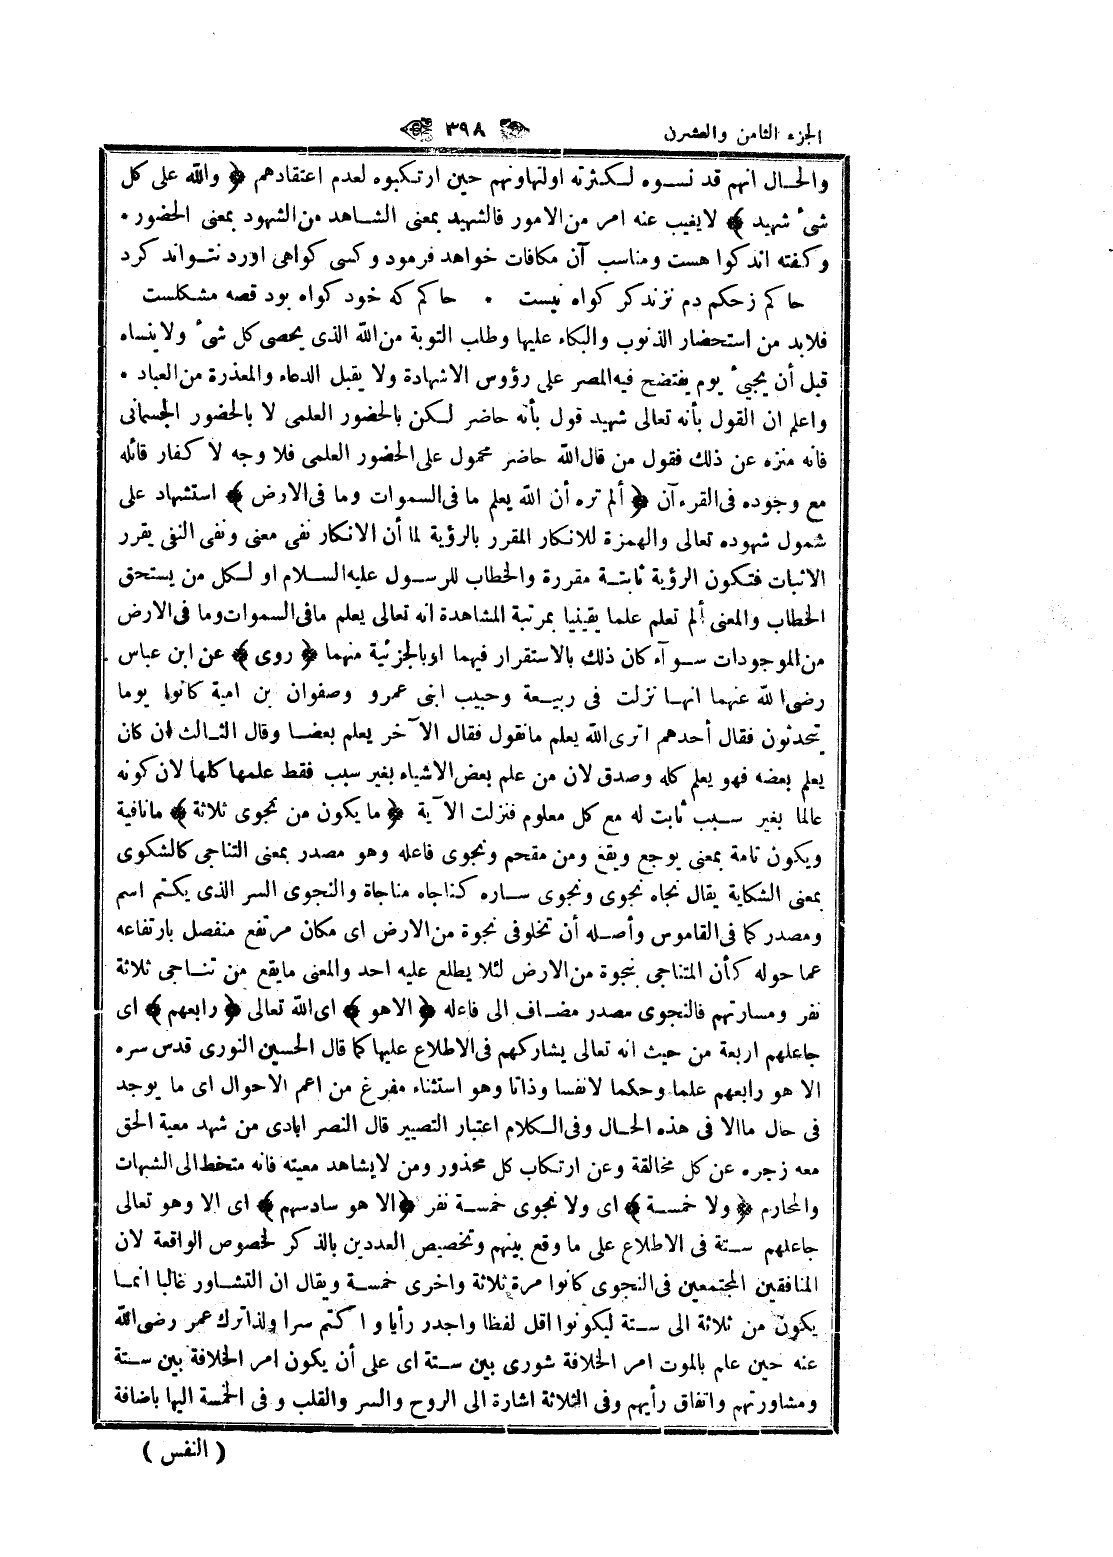 الجزء الثامن والعشرن
٣٩٨
والحال انهم قد نسوه لكثرته اولتهاونهم حين ارتكبوه لعدم اعتقادهم ﴿ والله على كل
شئ شهيد ﴾ لايغيب عنه امر من الامور فالشهيد بمعنى الشاهد من الشهود بمعنى الحضور •
وكفته اند كوا هست ومناسب آن مكافات خواهد فرمود وكسى كواهى اورد نتواند كرد
حاكم زحكم دم نزند كر كواه نيست • حاكم كه خود كواه بود قصه مشكلست
فلابد من استحضار الذنوب والبكاء عليها وطلب التوبة من الله الذى يحصى كل شئ ولا ينساه
قبل أن يجيئ يوم يفتضح فيه المصر على رؤوس الاشهادة ولا يقبل الدعاء والمعذرة من العباد •
واعلم ان القول بأنه تعالى شهيد قول بأنه حاضر لكن بالحضور العلمى لا بالحضور الجسمانى
فانه منزه عن ذلك فقول من قال الله حاضر محمول على الحضور العلمى فلا وجه لا كفار قائله
مع وجوده فى القرءآن ﴿ ألم تره أن الله يعلم ما فى السموات وما فى الارض ﴾ استشهاد على
شمول شهوده تعالى والهمزة للانكار المقرر بالرؤية لما أن الانكار نفى معنى ونفى النفى يقرر
الاثبات فتكون الرؤية ثابتة مقررة والخطاب للرسول عليه السلام او لكل من يستحق
الخطاب والمعنى ألم تعلم علما يقينيا بمرتبة المشاهدة انه تعالى يعلم مافى السموات وما فى الارض
من الموجودات سوآء كان ذلك بالاستقرار فيهما اوبالجزئية منهما ﴿ روى ﴾ عن ابن عباس
رضى الله عنهما انها نزلت فى ربيعة وحبيب ابنى عمرو وصفوان بن امية كانوا يوما
يتحدثون فقال أحدهم اترى الله يعلم مانقول فقال الآخر يعلم بعضا وقال الثالث ان كان
يعلم بعضه فهو يعلم كله وصدق لان من علم بعض الاشياء بغير سبب فقط علمها كلها لان كونه
عالما بغير سبب ثابت له مع كل معلوم فنزلت الآية ﴿ ما يكون من نجوى ثلاثة ﴾ مانافية
ويكون تامة بمعنى يوجع ويقع ومن مقحم ونجوى فاعله وهو مصدر بمعنى التناجى كالشكوى
بمعنى الشكاية يقال نجاه نجوى ونجوى ساره كناجاه مناجاة والنجوى السر الذى يكتم اسم
ومصدر كما فى القاموس وأصله أن تخلوفى نجوة من الارض اى مكان مرتفع منفصل بارتفاعه
عما حوله كأن المتناجى بنجوة من الارض لئلا يطلع عليه احد والمعنى مايقع من تناجى ثلاثة
نفر ومسارتهم فالنجوى مصدر مضاف الى فاعله ﴿ الاهو ﴾ اى الله تعالى ﴿ رابعهم ﴾ اى
جاعلهم اربعة من حيث انه تعالى يشاركهم فى الاطلاع عليها كما قال الحسين النورى قدس سره
الا هو رابعهم علما وحكما لا نفسا وذاتا وهو استثناء مفرغ من اعم الاحوال اى ما يوجد
فى حال ما الا فى هذه الحال وفى الكلام اعتبار التصيير قال النصر ابادى من شهد معية الحق
معه زجره عن كل مخالفة وعن ارتكاب كل محذور ومن لا يشاهد معيته فانه متخط الى الشبهات
والمحارم ﴿ ولا خمسة ﴾ اى ولا نجوى خمسة نفر ﴿ الا هو سادسهم ﴾ اى الا وهو تعالى
جاعلهم ستة فى الاطلاع على ما وقع بينهم وتخصيص العددين بالذكر لخصوص الواقعة لان
المنافقين المجتمعين فى النجوى كانوا مرة ثلاثة واخرى خمسة ويقال ان التشاور غالبا انما
يكون من ثلاثة الى ستة ليكونوا اقل لفظا واجدر رأيا واكتم سرا ولذاترك عمر رضى الله
عنه حين علم بالموت امر الخلافة شورى بين ستة اى على أن يكون امر الخلافة بين ستة
ومشاورتهم واتفاق رأيهم وفى الثلاثة اشارة الى الروح والسر والقلب و فى الخمسة اليها باضافة
( النفس )